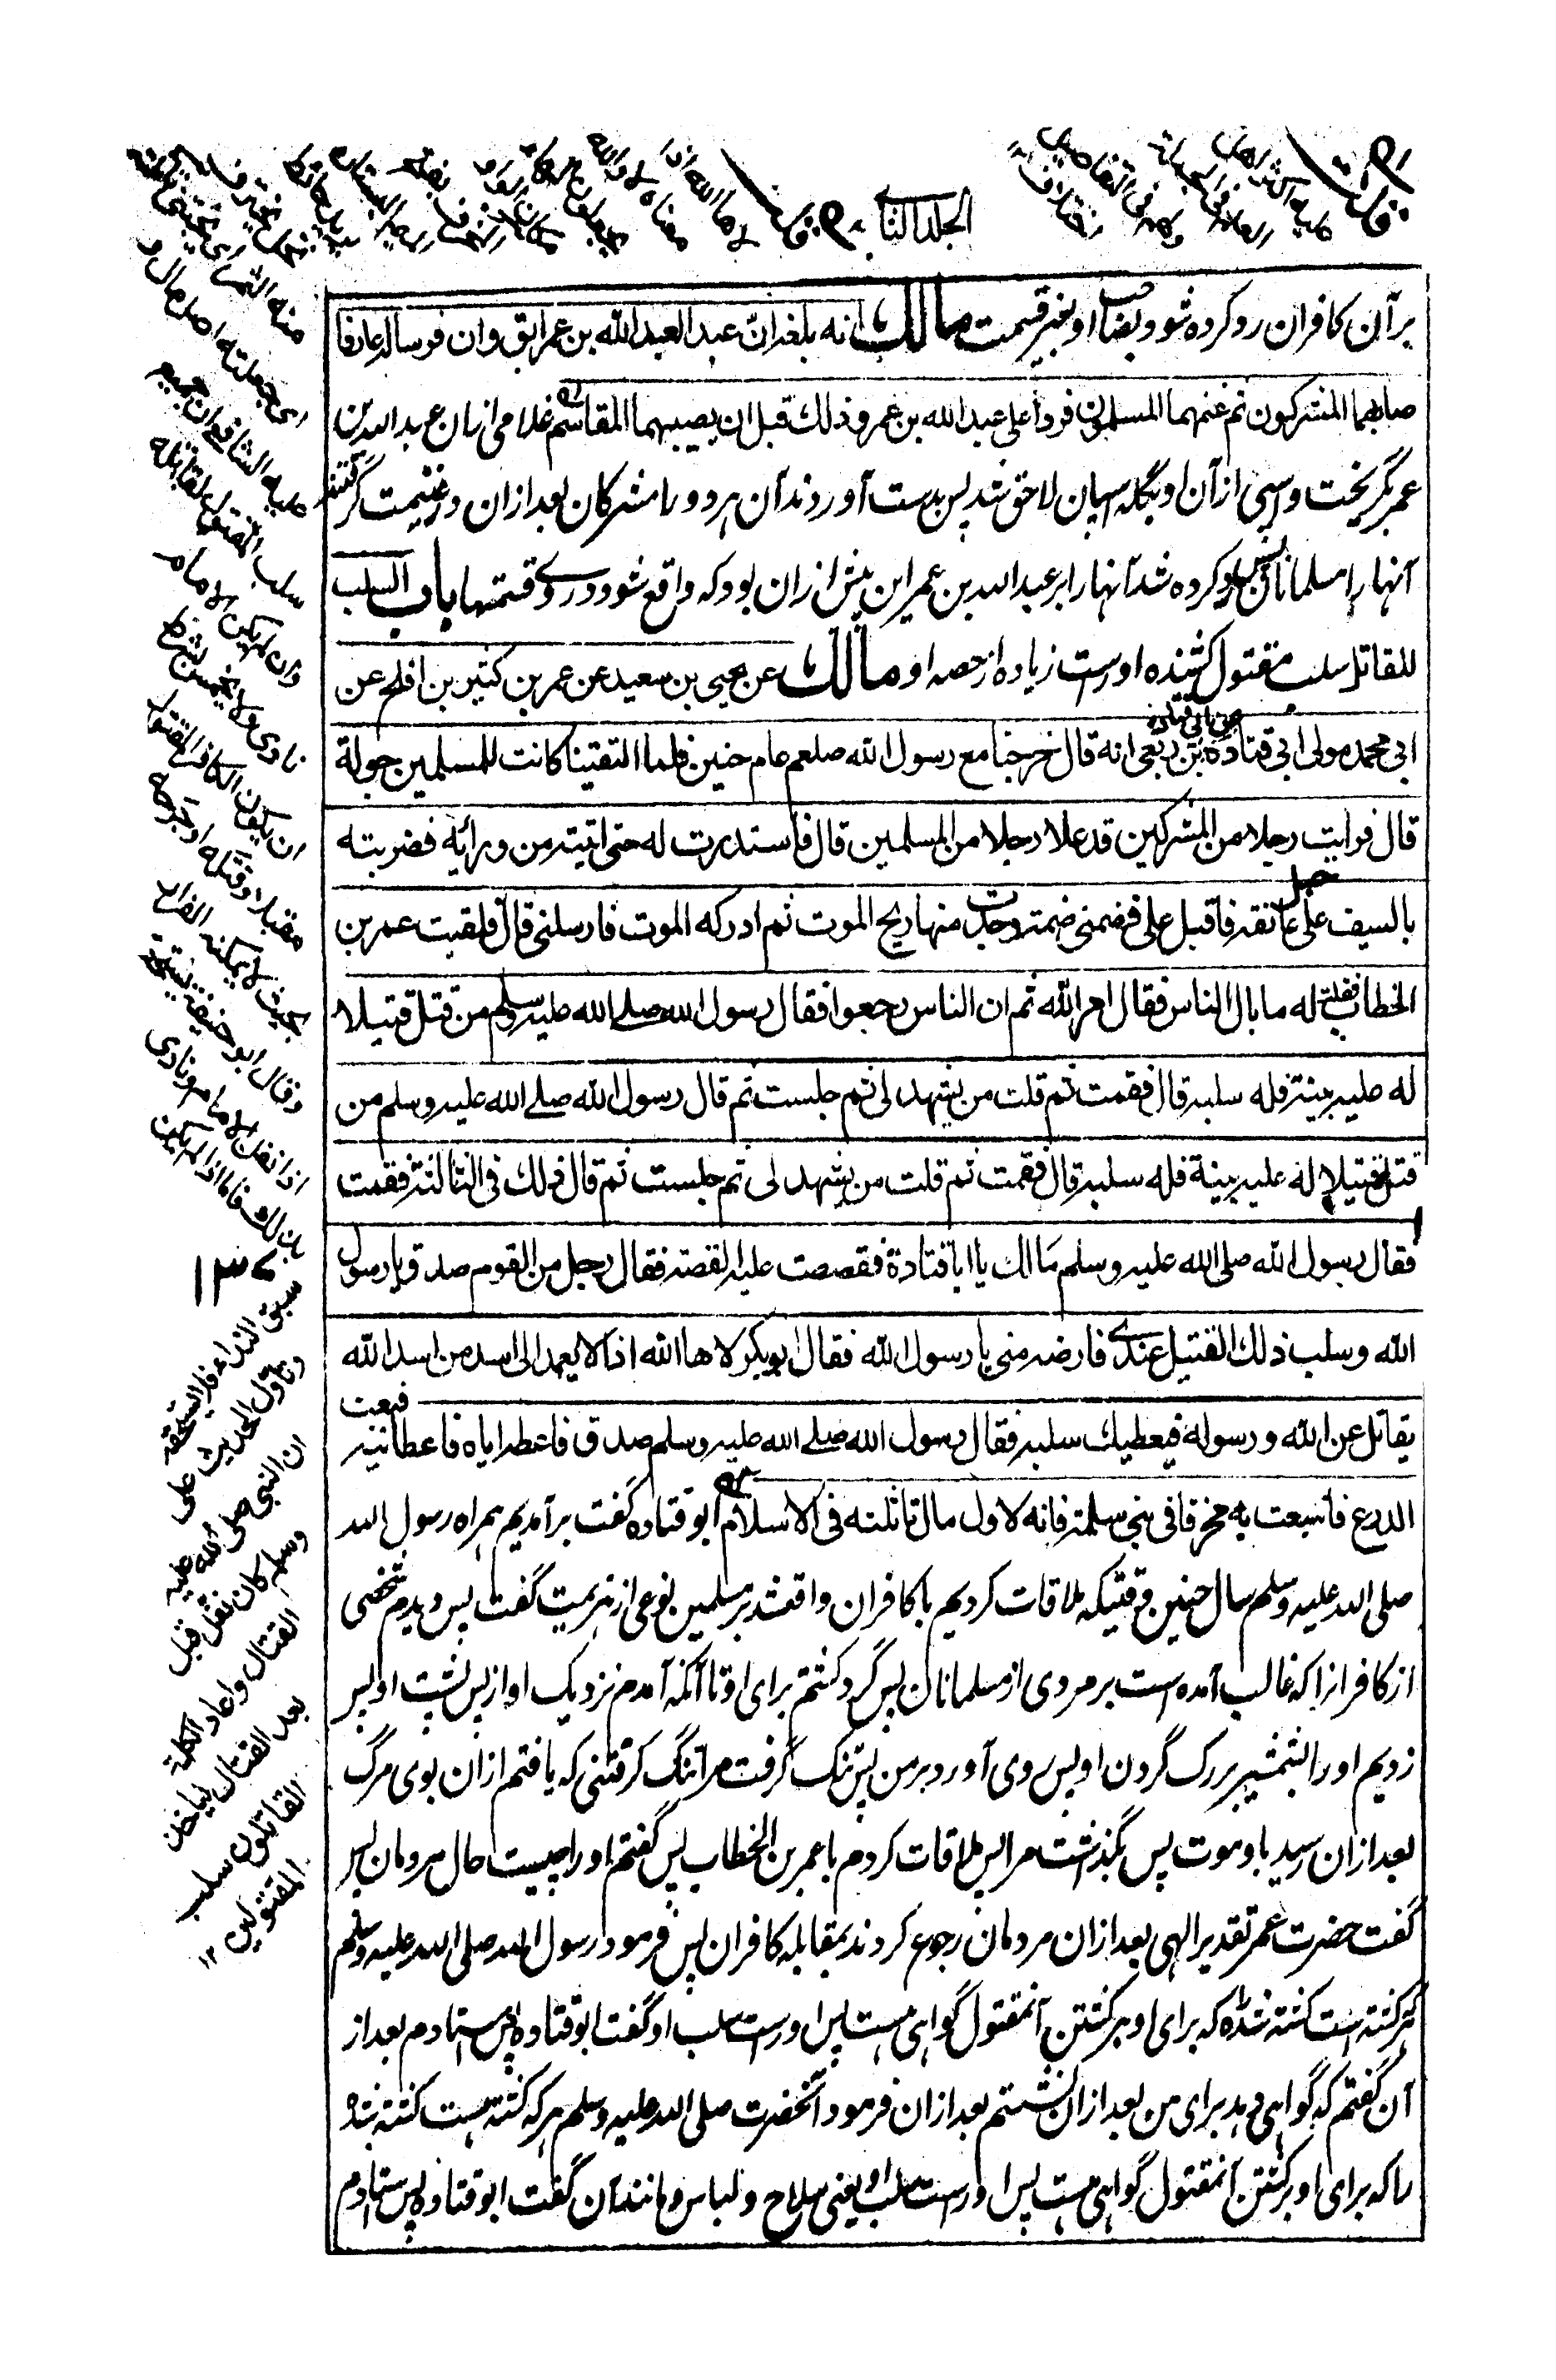 الجلد الثانی
بر آن کافران رو کرده شود بصاحب او بغیر قسمت مالك انه بلغه ان عبد العبد الله بن عمر ابق وان فرسا له عار فا
صابهما المشركون ثم غنمهما المسلمون فردا على عبد الله بن عمر وذلك قبل ان يصيبهما المقاسم غلامی ازان عبدالله بن
عمر بگریخت و اسپی از آن او بگله اسپان لاحق شد پس بدست آوردند آن هردو را مشرکان بعد ازان در غنیمت گرفتند
آنها را مسلمانان پس رد کرده شد آنها را بر عبدالله بن عمر این پیش ازان بود که واقع شود دروے قسمتها باب السلب
للقاتل سلب مقتول کشنده اوراست زیاده از حصه او مالك عن يحيى بن سعيد عن عمر بن كثير بن افلح عن
ابی محمد مولی ابی قتادة عن ابی قتادة بن ربعی انه قال خرجنا مع رسول الله صلعم عام حنين فلما التقينا كانت للمسلمين جولة
قال فرايت رجلا من المشركين قد علا رجلا من المسلمين قال فاستدرت له حتى اتيته من ورائه فضربته
بالسيف على حبل عاتقه فاقبل علي فضمني ضمة وجدت منها ريح الموت ثم ادركه الموت فارسلني قال فلقيت عمر بن
الخطاب فقلت له ما بال الناس فقال امر الله ثم ان الناس رجعوا فقال رسول الله صلے الله عليه وسلم من قتل قتيلا
له عليه بينة فله سلبه قال فقمت ثم قلت من يشهد لی ثم جلست ثم قال رسول الله صلے الله عليه وسلم من
قتل قتيلا له عليه بينة فله سلبه قال فقمت ثم قلت من يشهد لی ثم جلست ثم قال ذلك في الثالثة فقمت
فقال رسول الله صلى الله عليه وسلم مالك يا ابا قتادة فقصصت عليه القصة فقال رجل من القوم صدق يا رسول
الله وسلب ذلك القتيل عندے فارضه منی يا رسول الله فقال ابو بكر لا ها الله اذا لا يعمد الی اسد من اسد الله
يقاتل عن الله ورسوله فيعطيك سلبه فقال رسول الله صلے الله عليه وسلم صدق فاعطه اياه فاعطانيه فبعت
الدرع فابتعت به مخرفا فی بنی سلمة فانه لاول مال تاثلته فی الاسلام ابوقتاده گفت برآمدیم همراه رسول الله
صلی الله علیه وسلم سال حنین وقتیکه ملاقات کردیم با کافران واقع شد بر مسلمین نوعی از هزیمت گفت پس دیدم شخصی
از کافران را که غالب آمده است بر مردی از مسلمانان پس گرد گشتم برای او تا آنکه آمدم نزدیک او از پس پشت او پس
زدیم او را بشمشیر بر رگ گردن او پس روی آورد بر من پس تنگ گرفت مرا تنگ گرفتنی که یافتم ازان بوی مرگ
بعد ازان رسید با و موت پس بگذاشت مرا پس ملاقات کردم با عمر بن الخطاب پس گفتم او را چیست حال مردمان پس
گفت حضرت عمر تقدیر الهی بعد ازان مردمان رجوع کردند بمقابله کافران پس فرمود رسول الله صلی الله علیه وسلم
هرکه کشته است کشته شده که برای او بر کشتن آنمقتول گواهی هست پس اوراست سلب او گفت ابوقتاده پس ستادم بعد از
آن گفتم که گواهی دهد برای من بعد ازان نشستم بعد ازان فرمود آنحضرت صلی الله علیه وسلم هرکه کشته هست کشته شده
را که برای او بر کشتن آنمقتول گواهی هست پس اوراست سلب او یعنی سلاح و لباس و مانند آن گفت ابوقتاده پس ستادم
منه الثمر ای یجتنی
ای جعلته اصل مال
علیه الشافعی ان جمیع
سلب المقتول لقاتله
وان لم یکن الامام
نادی ولا یخمس بشرط
ان یکون الکافر المقتول
مقبلا وقتله او جرحه
بحیث لا یمکنه الفرار
وقال ابو حنیفة یستحقه
اذا نفل الامام ونادی
بذلك فاما اذا لم یکن
سبق النداء فلا یستحقه
وتاول الحدیث علی
ان النبی صلی الله علیه
وسلم کان نفل قبل
القتال واعاد الکلمة
بعد القتال لیاخذ
القاتلون سلب
المقتولین ۱۲